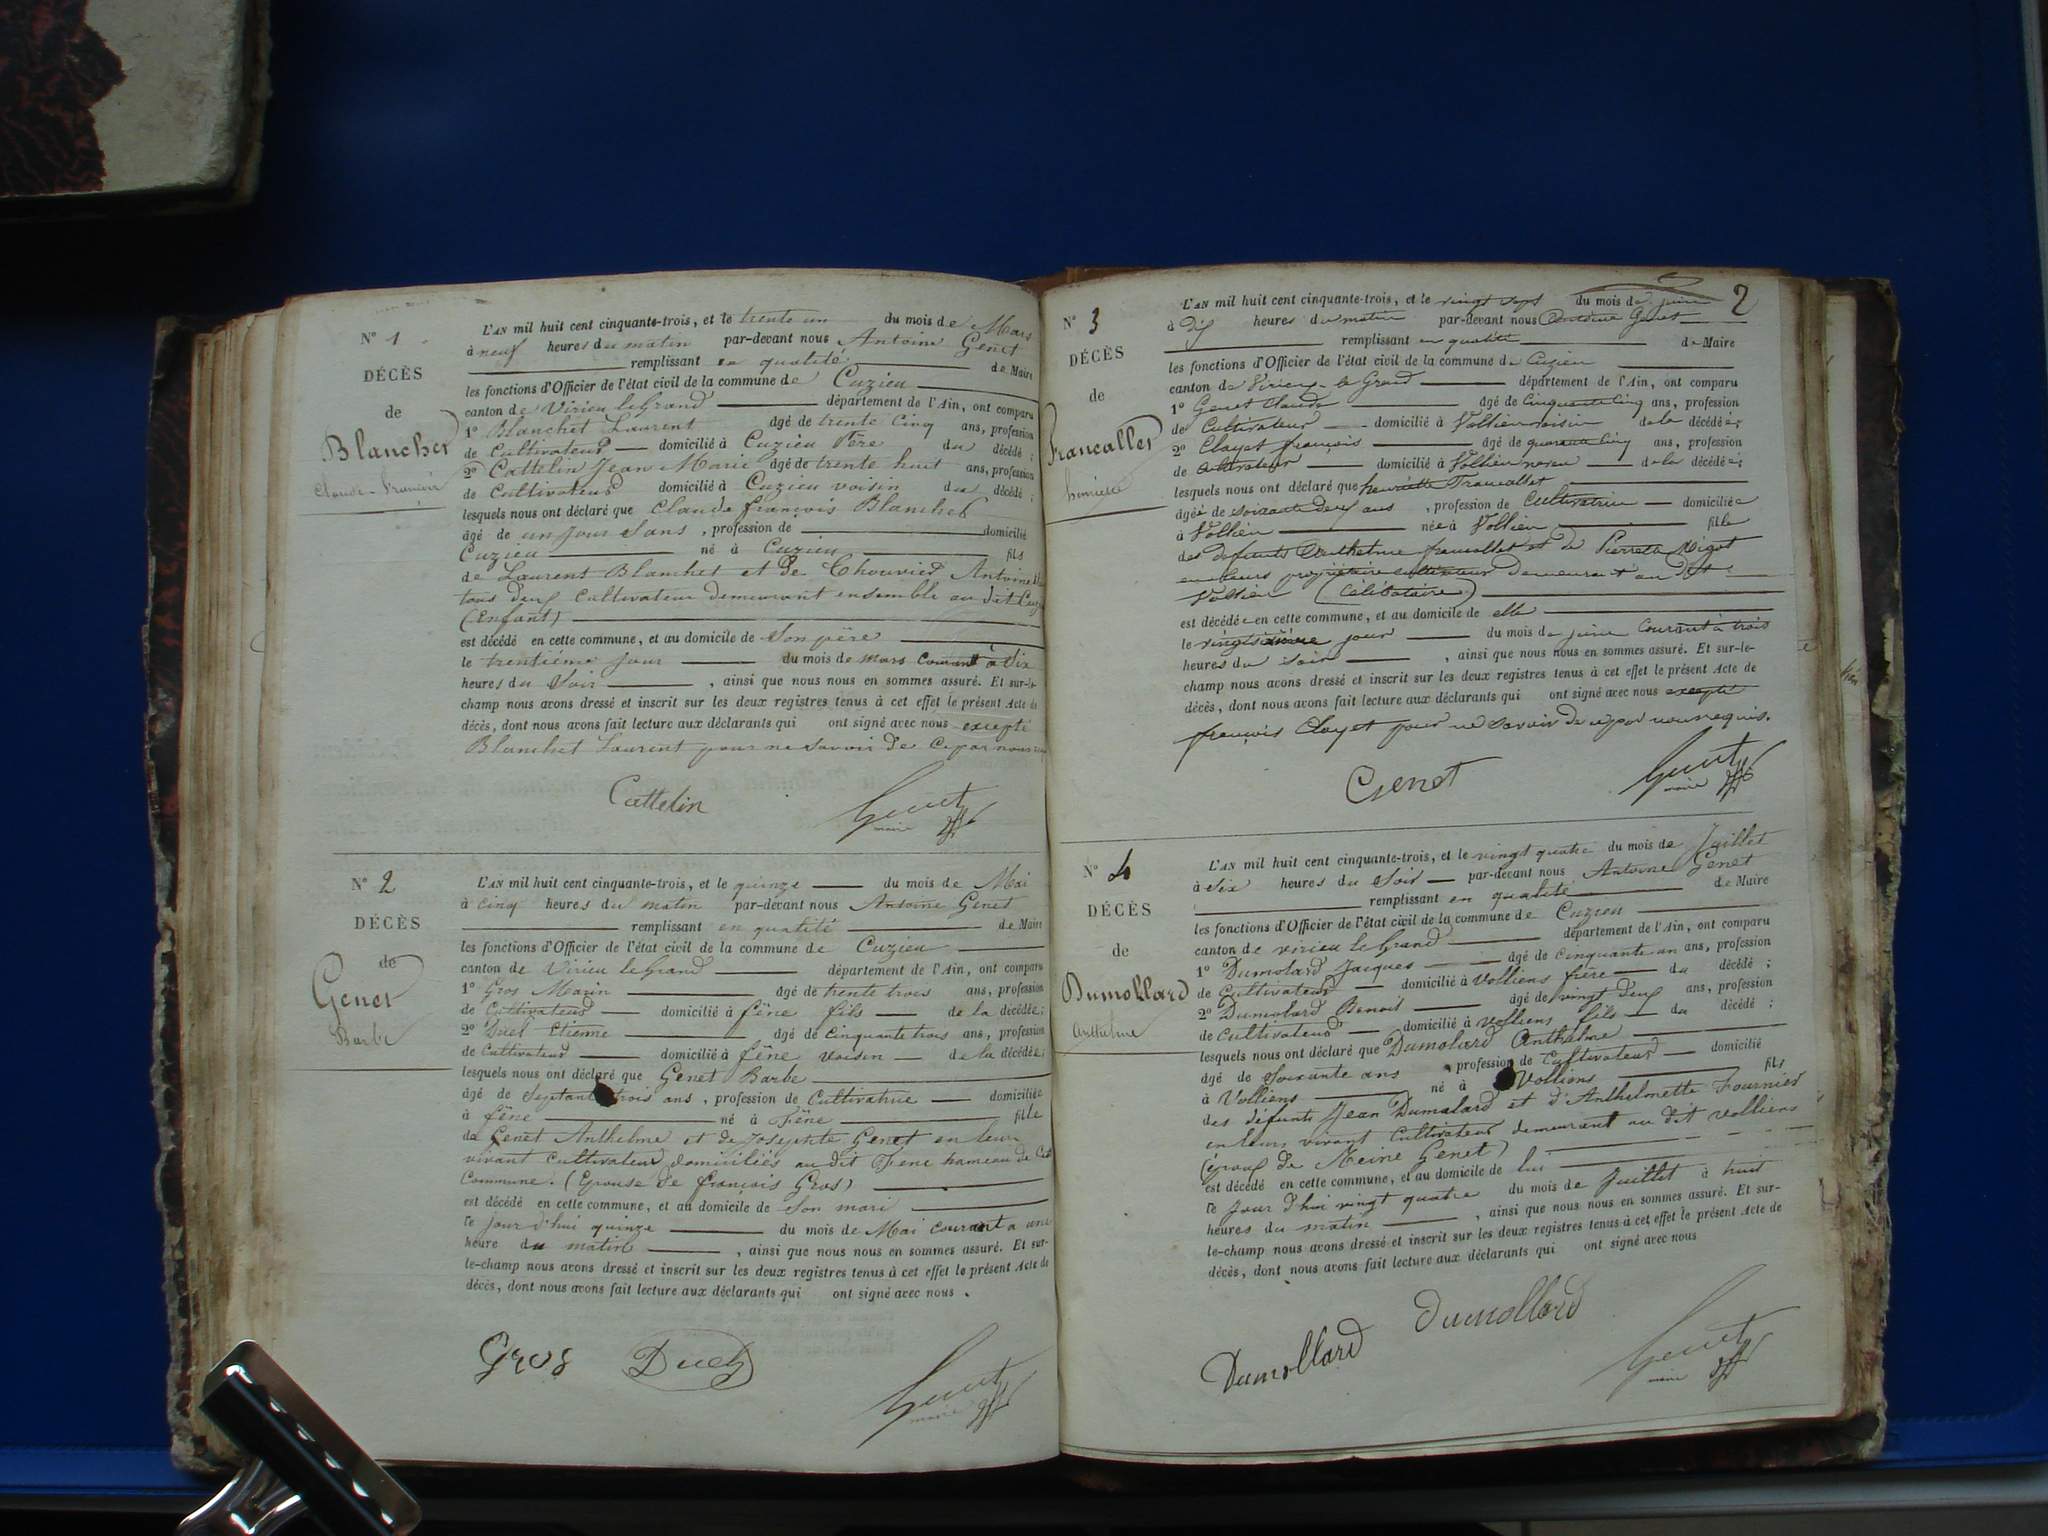 N° 1
DÉCÈS
de
Blanchet
Claude-François
L'AN mil huit cent cinquante-trois, et le trente un du mois de Mars
à neuf heures du matin par-devant nous Antoine Genet
remplissant en qualité de Maire
les fonctions d'Officier de l'état civil de la commune de Cuzieu
canton de Virieu le Grand département de l'Ain, ont comparu
1° Blanchet Laurent âgé de trente Cinq ans, profession
de Cultivateur domicilié à Cuzieu Père du décédé ;
2° Cattelin Jean Marie âgé de trente huit ans, profession
de Cultivateur domicilié à Cuzieu voisin du décédé ;
lesquels nous ont déclaré que Claude françois Blanchet
âgé de un jour Sans , profession de domicilié
Cuzieu né à Cuzieu fils
de Laurent Blanchet et de Chouvier Antoine
tous deux Cultivateur demeurant ensemble au dit
(Enfant)
est décédé en cette commune, et au domicile de Son père
le trentième jour du mois de mars Courant à Six
heures du Soir , ainsi que nous nous en sommes assuré. Et sur-le-
champ nous avons dressé et inscrit sur les deux registres tenus à cet effet le présent Acte de
décès, dont nous avons fait lecture aux déclarants qui ont signé avec nous excepté
Blanchet Laurent pour ne Savoir de Ce par nous
Cattelin Genet
maire
N° 2
DÉCÈS
de
Genet
Barbe
L'AN mil huit cent cinquante-trois, et le quinze du mois de Mai
à cinq heures du matin par-devant nous Antoine Genet
remplissant en qualité de Maire
les fonctions d'Officier de l'état civil de la commune de Cuzieu
canton de Virieu le Grand département de l'Ain, ont comparu
1° Gros Marin âgé de trente trois ans, profession
de Cultivateur domicilié à fêne fils de la décédée ;
2° Duet Etienne âgé de Cinquante trois ans, profession
de Cultivateur domicilié à fêne voisin de la décédée ;
lesquels nous ont déclaré que Genet Barbe
âgé de Septante trois ans , profession de Cultivatrice domiciliée
à fêne né à Fêne fille
de Genet Anthelme et de Josephte Genet en leur
vivant cultivateur domiciliés au dit Fene hameau de
Commune. (Epouse de françois Gros)
est décédé en cette commune, et au domicile de Son mari
le jour d'hui quinze du mois de Mai courant a une
heure du matin , ainsi que nous nous en sommes assuré. Et sur-
le-champ nous avons dressé et inscrit sur les deux registres tenus à cet effet le présent Acte de
décès, dont nous avons fait lecture aux déclarants qui ont signé avec nous .
Gros Duet Genet
maire
2
N° 3
DÉCÈS
de
Francallet
L'AN mil huit cent cinquante-trois, et le vingt sept du mois de juin
à dix heures du matin par-devant nous Antoine Genet
remplissant en qualité de Maire
les fonctions d'Officier de l'état civil de la commune de Cuzieu
canton de Virieu-le Grand département de l'Ain, ont comparu
1° Genet Claude âgé de Cinquante Cinq ans, profession
de Cultivateur domicilié à Vollien voisin de la décédée ;
2° Clayet françois âgé de quarante Cinq ans, profession
de Cultivateur domicilié à Vollien neveu de la décédée ;
lesquels nous ont déclaré que henriette Francallet
âgée de soixante deux ans , profession de Cultivatrice domiciliée
à Vollien née à Vollien fille
des defunts Anthelme francallet et de Pierrette Migot
en leurs propriétaire cultivateur demeurant au dit
Vollien (Célibataire)
est décédée en cette commune, et au domicile de elle
le vingt sixième jour du mois de juin Courant à trois
heures du soir , ainsi que nous nous en sommes assuré. Et sur-le-
champ nous avons dressé et inscrit sur les deux registres tenus à cet effet le présent Acte de
décès, dont nous avons fait lecture aux déclarants qui ont signé avec nous excepté
françois Clayet pour ne Savoir de ce par nous requis.
Genet Genet
maire
N° 4
DÉCÈS
de
Dumollard
Anthelme
L'AN mil huit cent cinquante-trois, et le vingt quatre du mois de Juillet
à six heures du Soir par-devant nous Antoine Genet
remplissant en qualité de Maire
les fonctions d'Officier de l'état civil de la commune de Cuzieu
canton de virieu le Grand département de l'Ain, ont comparu
1° Dumolard Jacques âgé de Cinquante un ans, profession
de Cultivateur domicilié à Volliens frère du décédé ;
2° Dumolard Benoit âgé de vingt deux ans, profession
de Cultivateur domicilié à Volliens fils du décédé ;
lesquels nous ont déclaré que Dumolard Anthelme
âgé de Soixante ans , profession de Cultivateur domicilié
à Volliens né à Volliens fils
des défunts Jean Dumolard et d'Anthelmette Fournier
en leurs vivant Cultivateur demeurant au dit volliens
(époux de Reine Genet)
est décédé en cette commune, et au domicile de lui
le Jour d'hui vingt quatre du mois de Juillet à huit
heures du matin , ainsi que nous nous en sommes assuré. Et sur-
le-champ nous avons dressé et inscrit sur les deux registres tenus à cet effet le présent Acte de
décès, dont nous avons fait lecture aux déclarants qui ont signé avec nous
Dumollard Dumollard Genet
maire